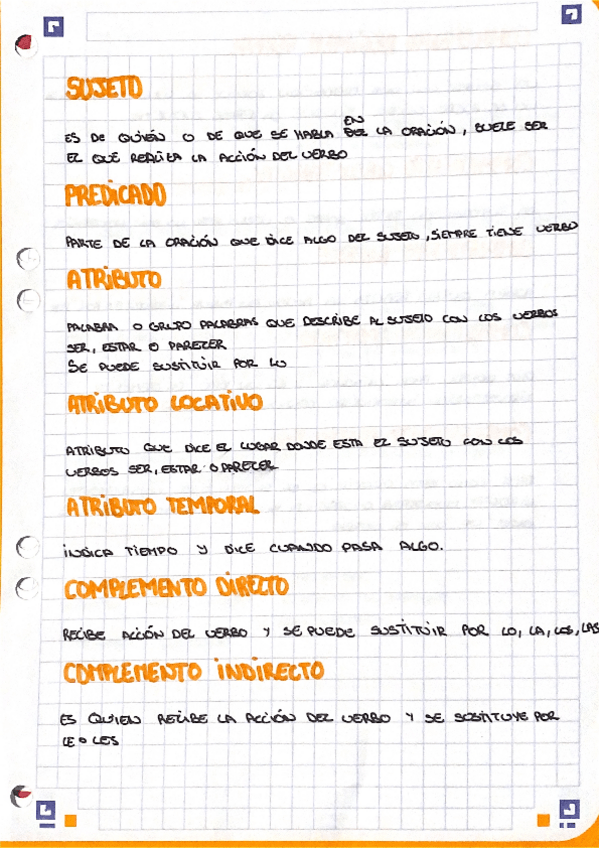 SUJETO
ES DE QUIÉN O DE QUE SE HABLA EN LA ORACIÓN, SUELE SER
EL QUE REALIZA LA ACCIÓN DEL VERBO
PREDICADO
PARTE DE LA ORACIÓN QUE DICE ALGO DEL SUJETO, SIEMPRE TIENE VERBO
ATRIBUTO
PALABRA O GRUPO PALABRAS QUE DESCRIBE AL SUJETO CON LOS VERBOS
SER, ESTAR O PARECER
SE PUEDE SUSTITUIR POR LO
ATRIBUTO LOCATIVO
ATRIBUTO QUE DICE EL LUGAR DONDE ESTA EL SUJETO CON LOS
VERBOS SER, ESTAR O PARECER
ATRIBUTO TEMPORAL
INDICA TIEMPO Y DICE CUANDO PASA ALGO.
COMPLEMENTO DIRECTO
RECIBE ACCIÓN DEL VERBO Y SE PUEDE SUSTITUIR POR LO, LA, LOS, LAS
COMPLEMENTO INDIRECTO
ES QUIEN RECIBE LA ACCIÓN DEL VERBO Y SE SUSTITUYE POR
LE O LES